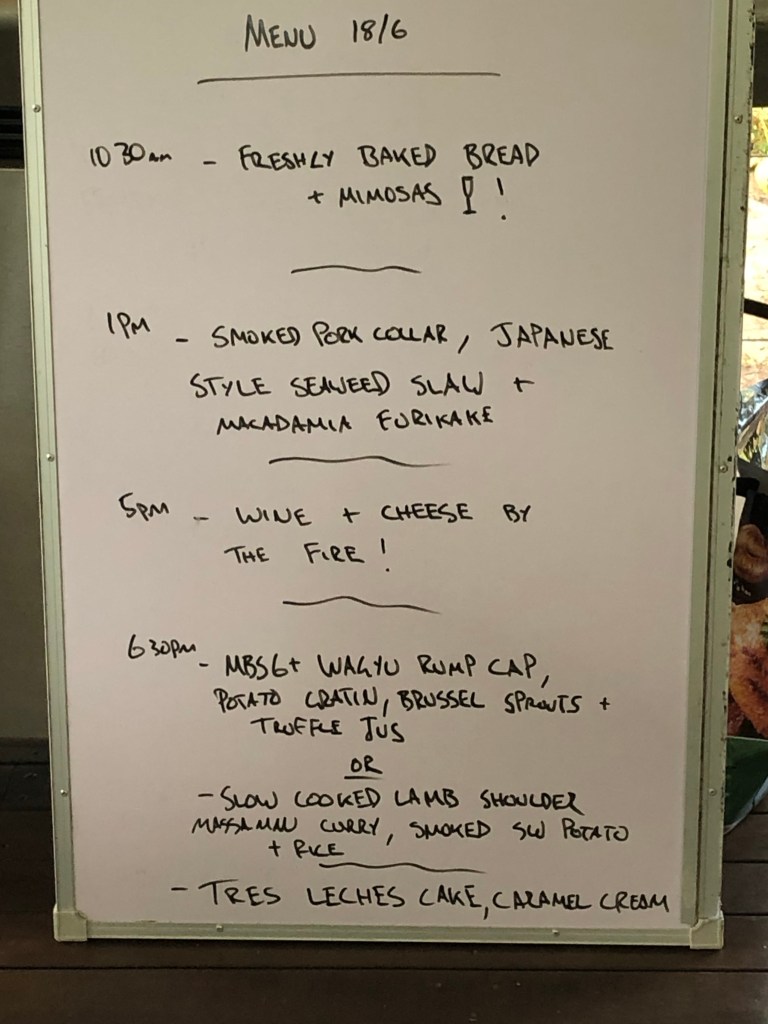 MENU 18/6
10 30am - FRESHLY BAKED BREAD
+ MIMOSAS !
1PM - SMOKED PORK COLLAR, JAPANESE
STYLE SEAWEED SLAW +
MACADAMIA FURIKAKE
5PM - WINE + CHEESE BY
THE FIRE!
6 30PM - MBS6+ WAGYU RUMP CAP,
POTATO GRATIN, BRUSSEL SPROUTS +
TRUFFLE JUS
OR
- SLOW COOKED LAMB SHOULDER
MASSAMAN CURRY, SMOKED SW POTATO
+ RICE
- TRES LECHES CAKE, CARAMEL CREAM